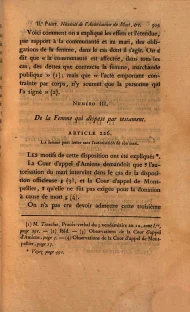 II.e PART. Nécessité de l'Autorisation du Mari, &c. 505
Voici comment on a expliqué les effets et l'étendue,
par rapport à la communauté et au mari, des obliga-
tions de la femme, dans le cas dont il s'agit. On a
dit que « la communauté est affectée, dans tous les
cas, des dettes que contracte la femme, marchande
publique » (1); mais que « l'acte emportant con-
trainte par corps, n'y soumet que la personne qui
l'a signé » (2).
NUMÉRO III.
De la Femme qui dispose par testament.
ARTICLE 226.
La femme peut tester sans l'autorisation de son mari.
LES motifs de cette disposition ont été expliqués *.
La Cour d'appel d'Amiens demandoit que « l'au-
torisation du mari intervînt dans le cas de la disposi-
tion officieuse » (3), et la Cour d'appel de Mont-
pellier, « qu'elle ne fût pas exigée pour la donation
à cause de mort » (4).
On n'a pas cru devoir admettre cette troisième
(1) M. Tronchet, Procès-verbal du 5 vendémiaire an 10, tome I.er,
page
(2) Ibid. — (3) Observations de la Cour d'appel
d'Amiens, page
— (4) Observations de la Cour d'appel de Mont-
pellier, page
* Voyez, page